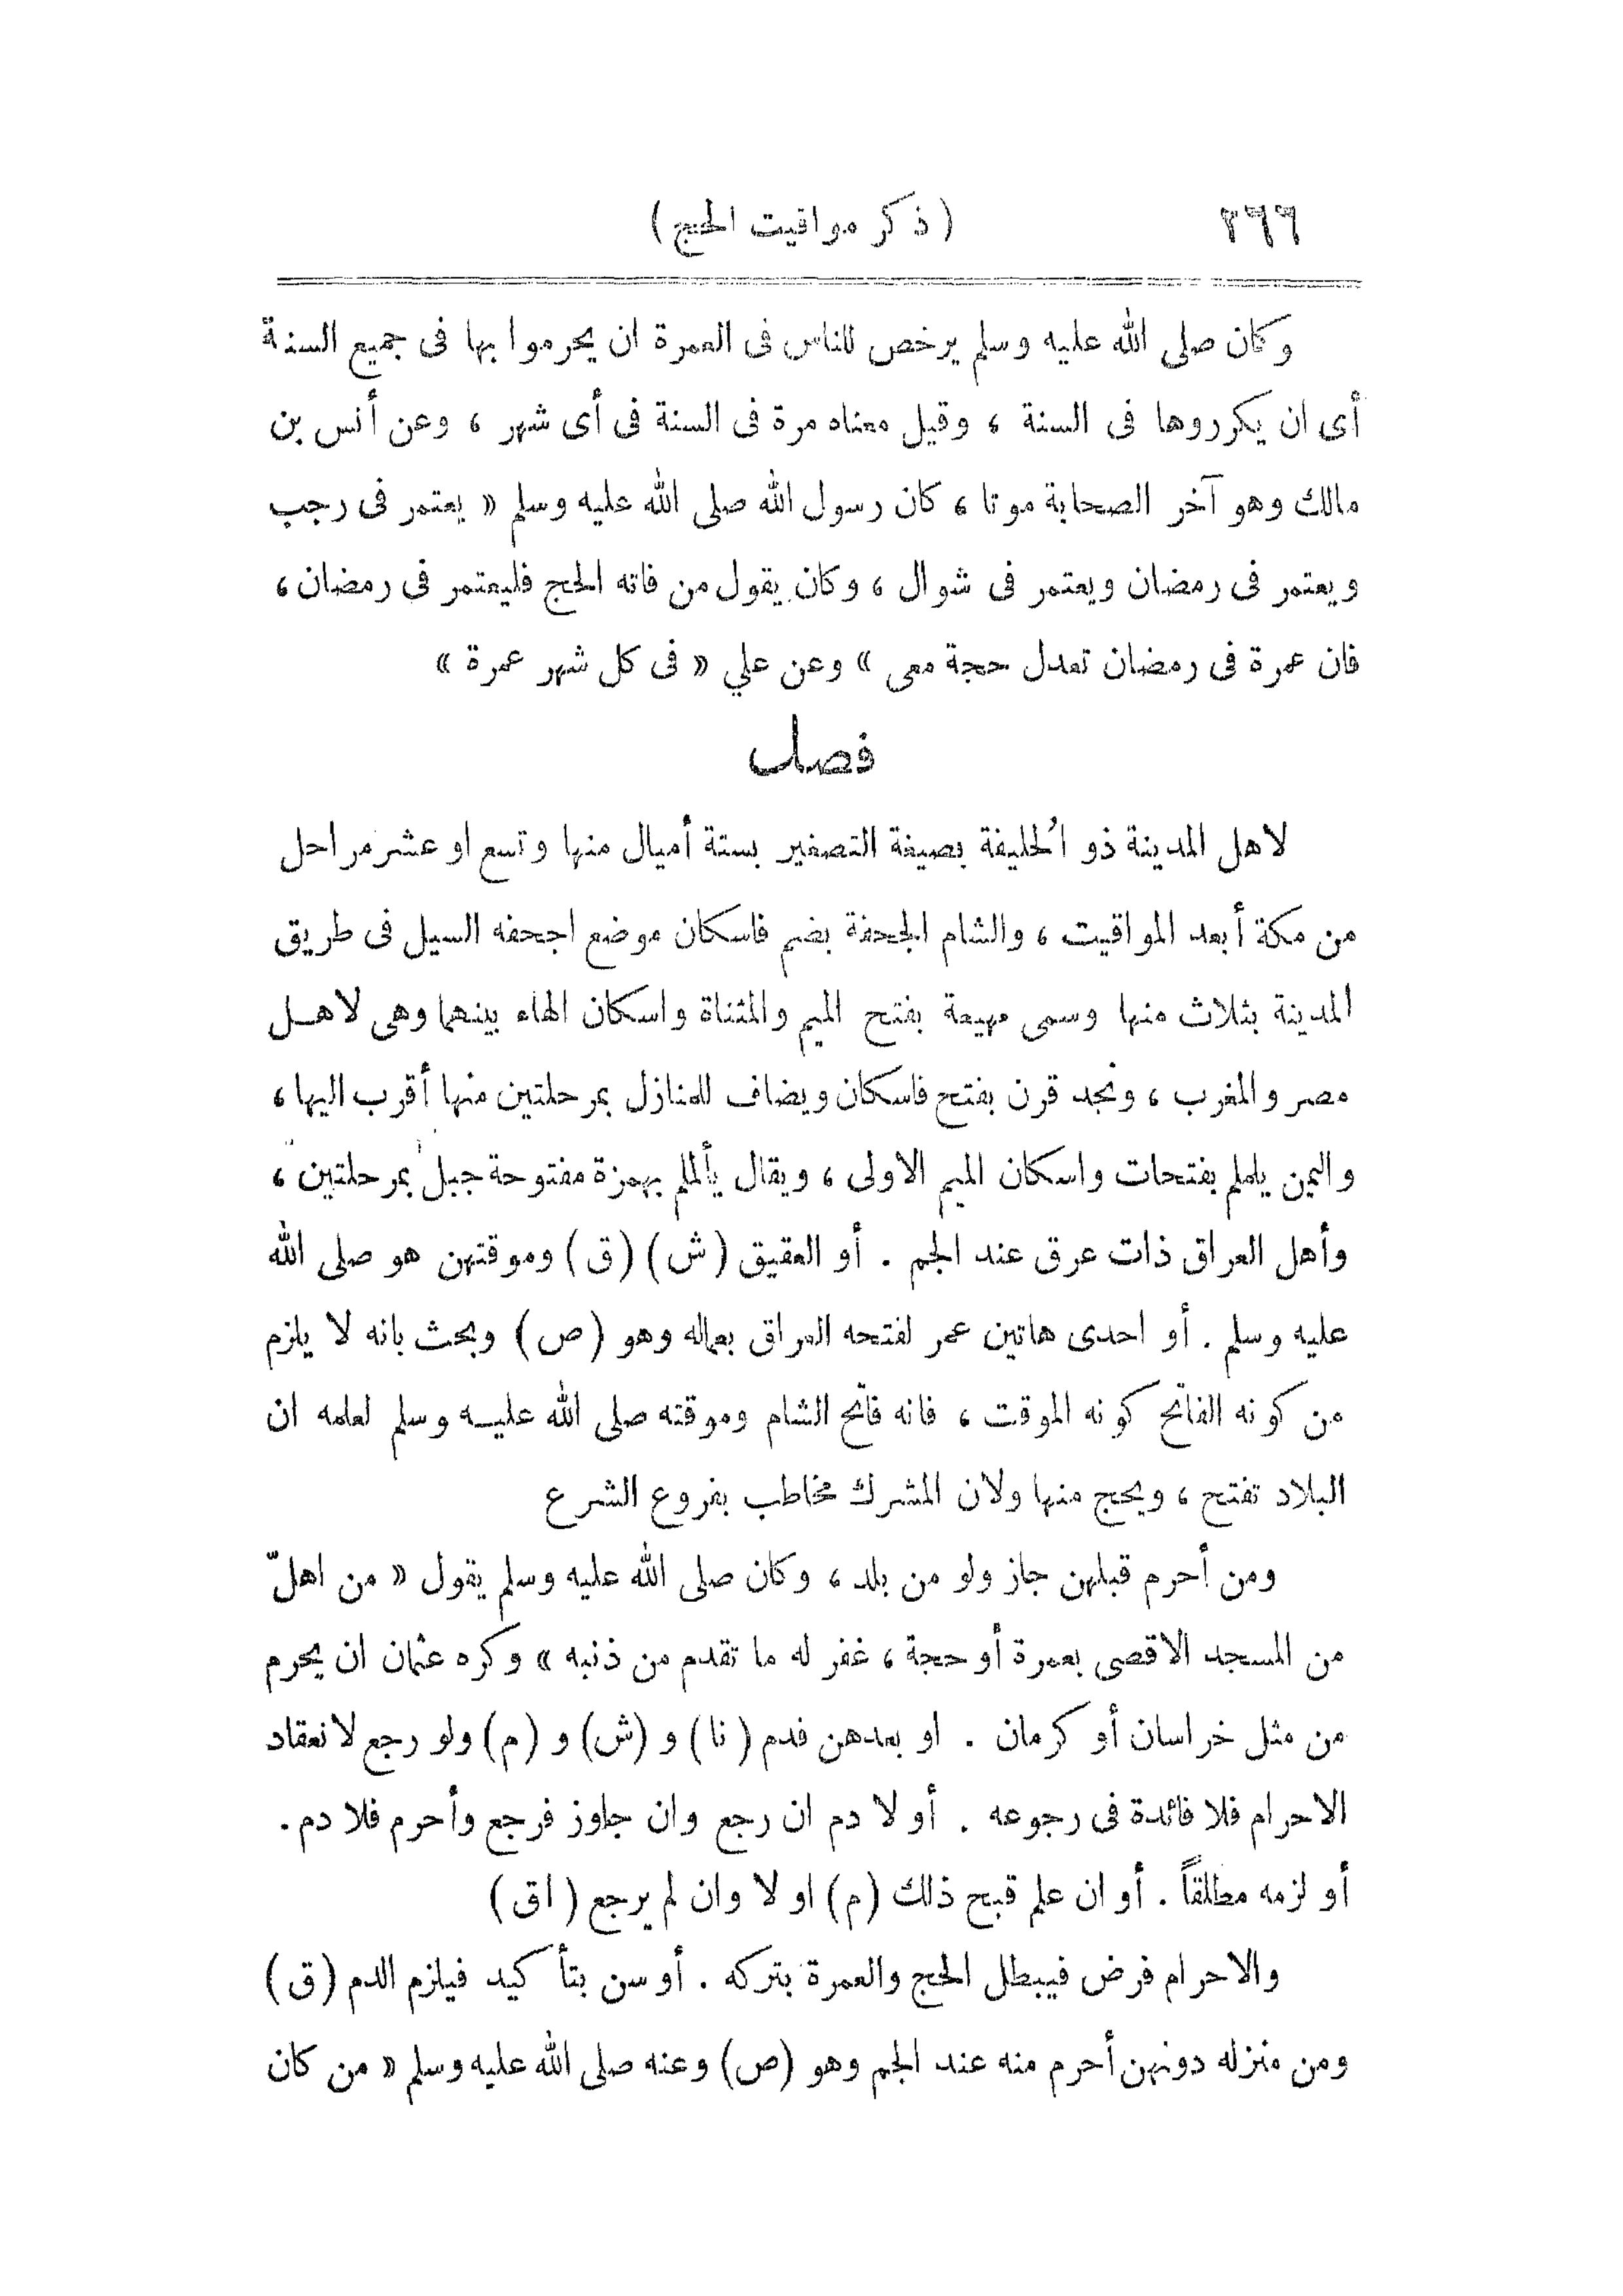 ٢٦٦ ( ذكر مواقيت الحج )
وكان صلى الله عليه وسلم يرخص للناس فى العمرة ان يحرموا بها فى جميع السنة
أى ان يكرروها فى السنة ، وقيل معناه مرة فى السنة فى أى شهر ، وعن أنس بن
مالك وهو آخر الصحابة موتا ، كان رسول الله صلى الله عليه وسلم « يعتمر فى رجب
ويعتمر فى رمضان ويعتمر فى شوال ، وكان يقول من فاته الحج فليعتمر فى رمضان ،
فان عمرة فى رمضان تعدل حجة معى » وعن علي « فى كل شهر عمرة »
فصل
لاهل المدينة ذو الُحليفة بصيغة التصغير بستة أميال منها وتسع او عشر مراحل
من مكة أبعد المواقيت ، والشام الجحفة بضم فاسكان موضع اجحفه السيل فى طريق
المدينة بثلاث منها وسمى مهيعة بفتح الميم والمثناة واسكان الهاء بينهما وهى لاهل
مصر والمغرب ، ونجد قرن بفتح فاسكان ويضاف للمنازل بمرحلتين منها أقرب اليها ،
واليمن يلملم بفتحات واسكان الميم الاولى ، ويقال يألملم بهمزة مفتوحة جبل بمرحلتين ،
وأهل العراق ذات عرق عند الجم . أو العقيق ( ش ) ( ق ) وموقتهن هو صلى الله
عليه وسلم . أو احدى هاتين عمر لفتحه العراق بعماله وهو ( ص ) وبحث بانه لا يلزم
من كونه الفاتح كونه الموقت ، فانه فاتح الشام وموقته صلى الله عليه وسلم لعلمه ان
البلاد تفتح ، ويحج منها ولان المشرك مخاطب بفروع الشرع
ومن أحرم قبلهن جاز ولو من بلد ، وكان صلى الله عليه وسلم يقول « من اهلّ
من المسجد الاقصى بعمرة أو حجة ، غفر له ما تقدم من ذنبه » وكره عثمان ان يحرم
من مثل خراسان أو كرمان . او بعدهن فدم ( نا ) و ( ش ) و ( م ) ولو رجع لانعقاد
الاحرام فلا فائدة فى رجوعه . أو لا دم ان رجع وان جاوز فرجع وأحرم فلا دم .
أو لزمه مطلقاً . أو ان علم قبح ذلك ( م ) او لا وان لم يرجع ( اق )
والاحرام فرض فيبطل الحج والعمرة بتركه . أو سن بتأكيد فيلزم الدم ( ق )
ومن منزله دونهن أحرم منه عند الجم وهو ( ص ) وعنه صلى الله عليه وسلم « من كان